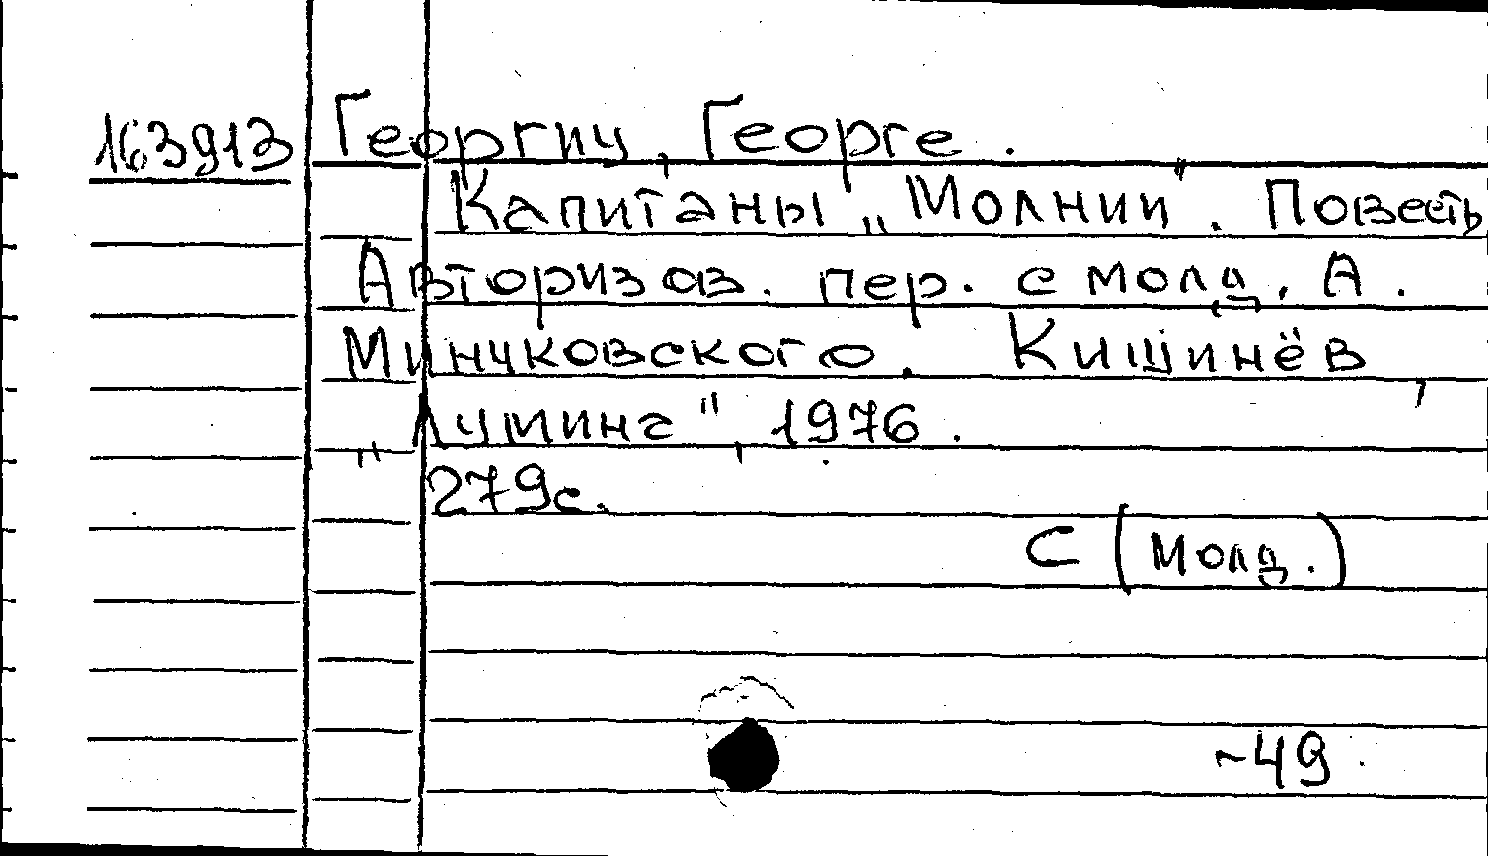 163913 Георгиу, Георге.
Капитаны „Молнии". Повесть
Авторизов. пер. с молд. А.
Минчковского. Кишинёв,
„Луминa", 1976.
279с.
С (молд.)
~49